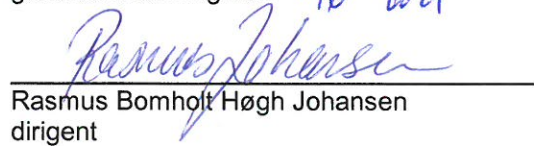 Rasmus Johansen
Rasmus Bomholt Høgh Johansen
dirigent